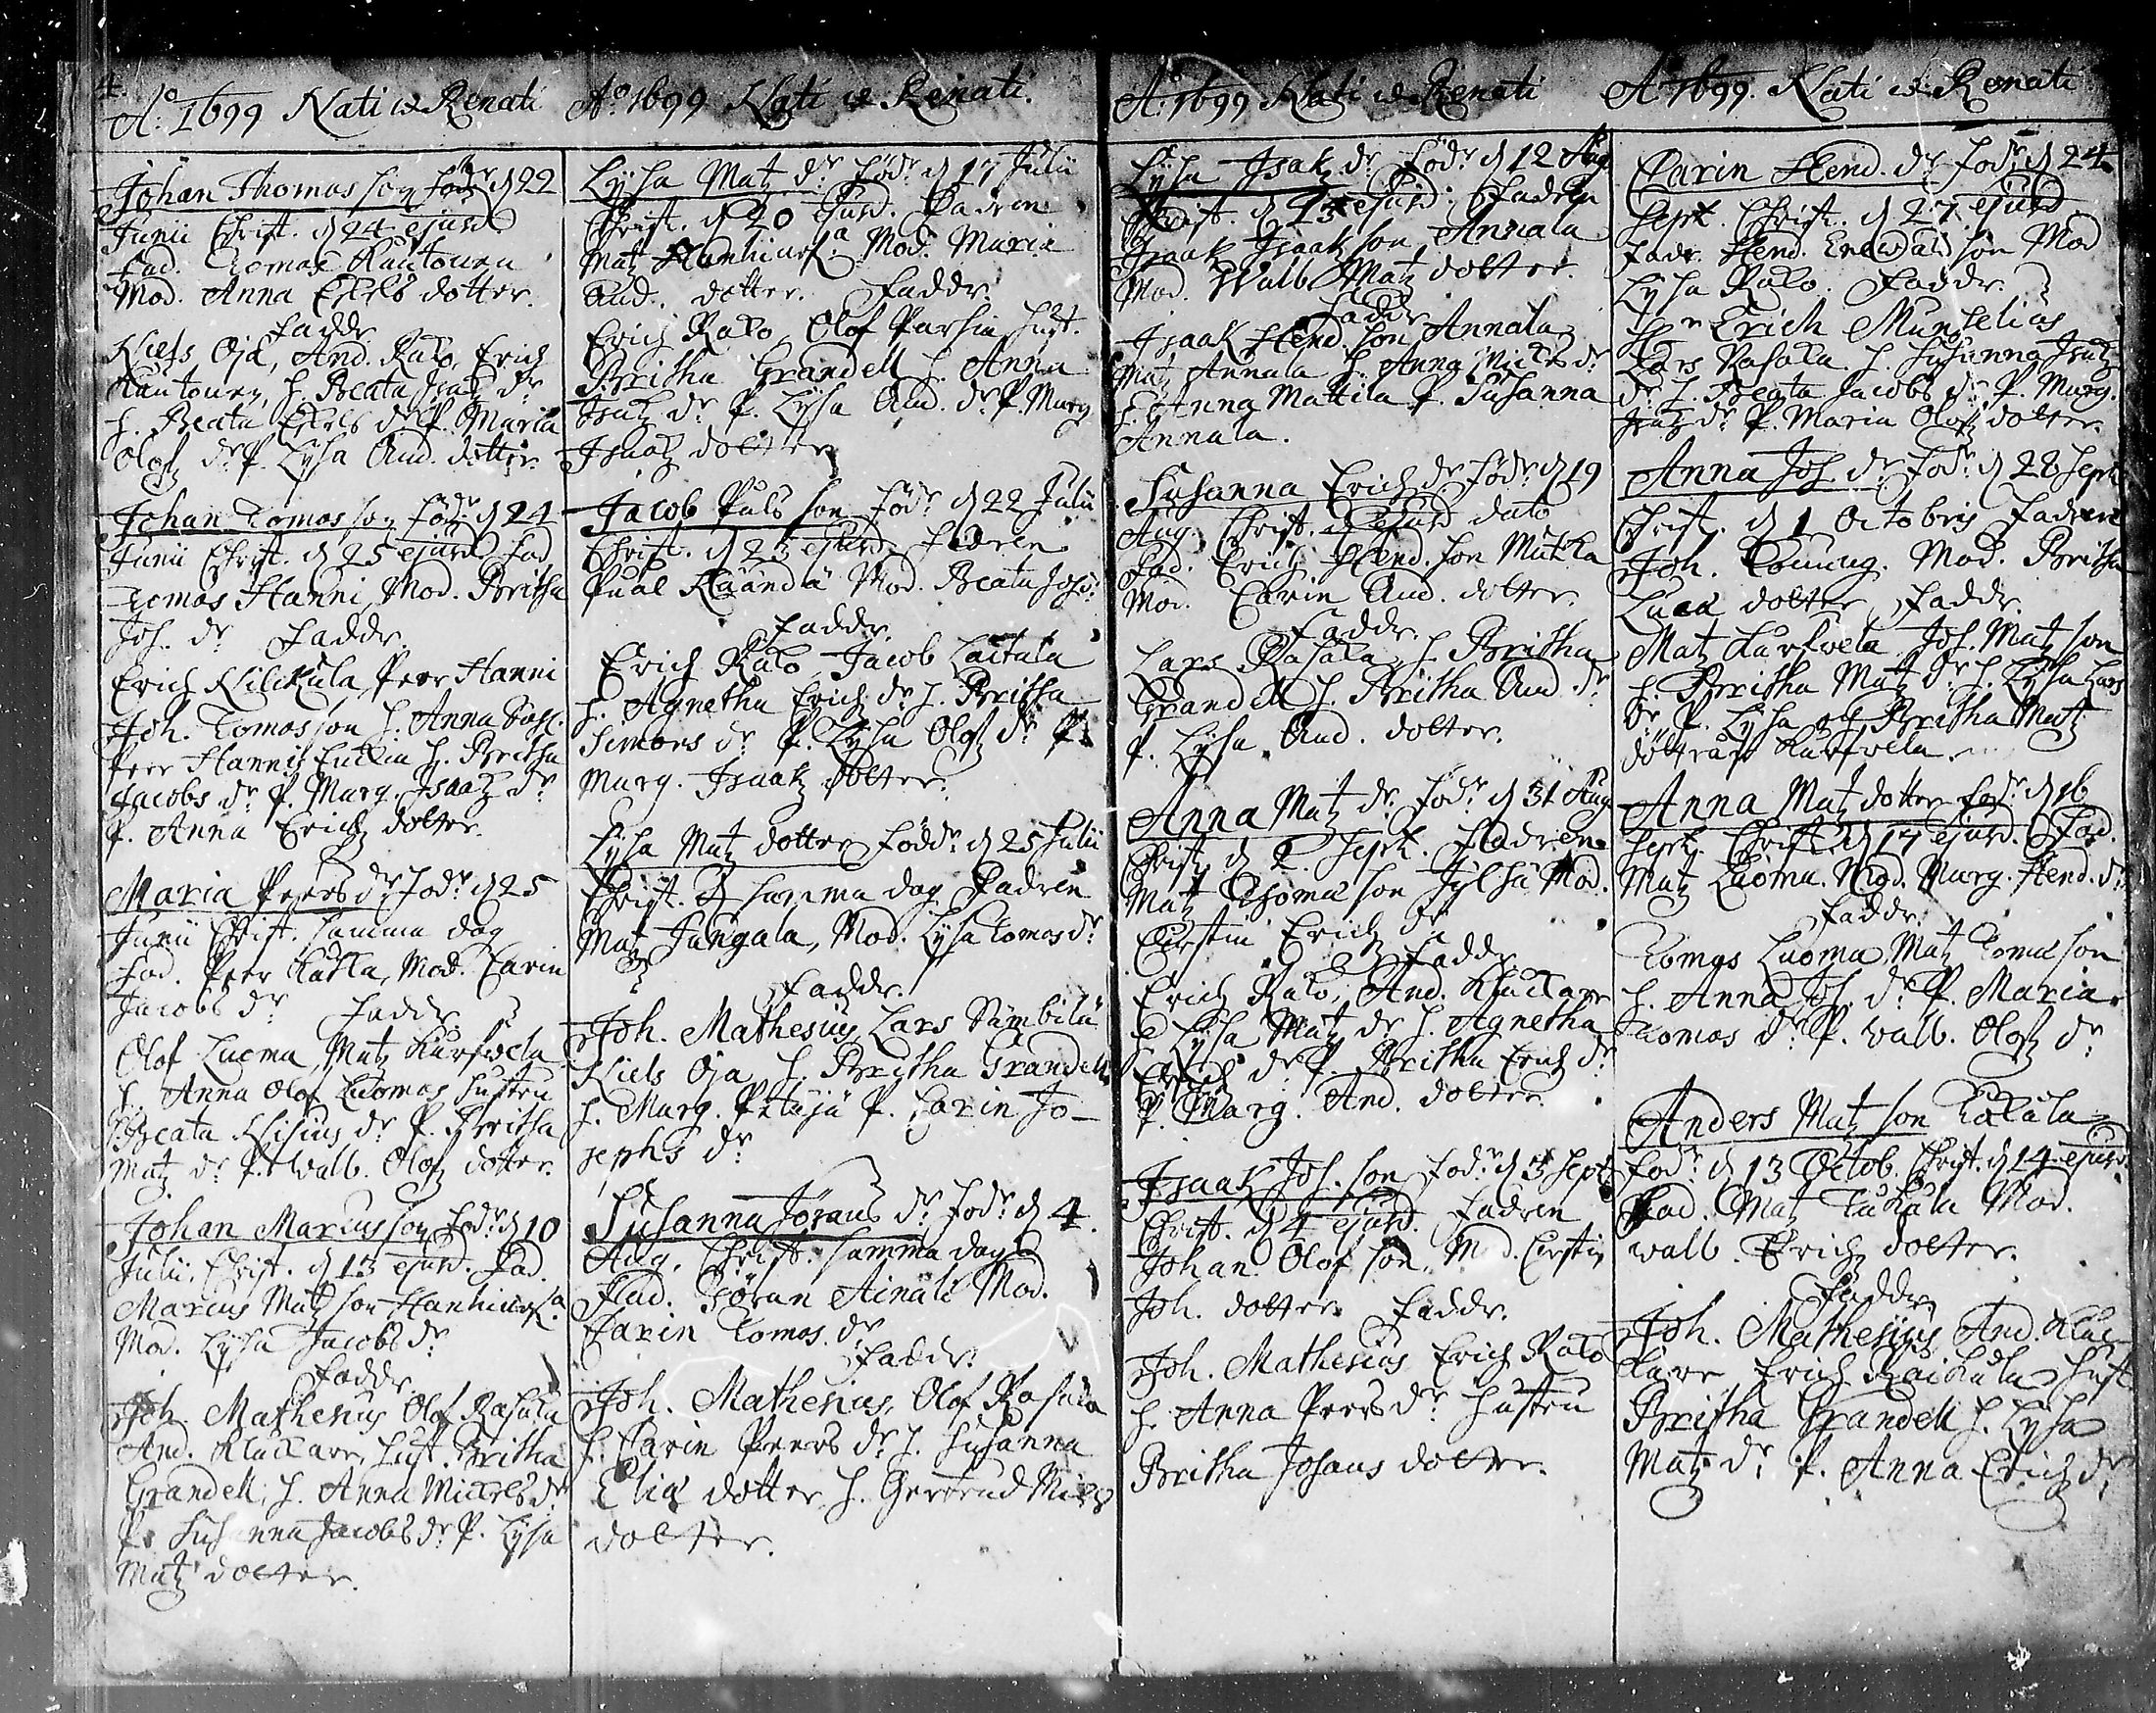 4.
Ao. 1699 Nati & Renati
Johan Thomas son föd:r d 22
Junii Christ. d 24 ejusd.
Fad. Tomas Kautonen
Mod. Anna Eskels dotter.
Faddr.
Niels Oja, And. Rako, Erich
Kautonen, h. Beata Isaatz dr
h. Beata Eskels dr P. Maria
Olofz dr P. Lysa And. dotter
Johan Tomas son född d 24
Junii Christ. d 25 ejusd Fad
Tomas Hanni, Mod. Britha
Joh. dr Faddr.
Erich Nilikula, Peer Hanni
Joh. Tomas son h. Anna
Peer Hannis Enckia h. Britha
Jacobs dr P. Marg. Isaatz dr
P. Anna Erichz dotter.
Maria Peers dr födr d 25
Junii Christ. samma dag
Fad. Peer Kukla, Mod. Carin
Jacobs dr Faddr
Olof Luoma, Matz Kurfwela
h. Anna Olof Luomas hustru
h. Beata Nisius dr P. Britha
Matz dr P. Walb. Olofz dotter.
Johan Marcus son födr d 10
Julii, Christ. d 13 ejusd. Fad.
Marcus Matz son Hanhiurfa.
Mod. Lysa Jacobs dr
Faddr
Joh. Mathesius Olof Rasula
And. Kluckare, hust. Britha
Grandell, h. Anna Mickels dr
P. Susanna Jacobs dr P. Lysa
Matz dotter.
Ao. 1699 Nati & Renati.
Lysa Matz dr född d 17 Julii
Christ. d 20 ejusd. Fadren
Matz Hanhiurf.a Mod. Maria
And. dotter. Faddr.
Erich Rako, Olof Parsia hust.
Britha Grandell h. Anna
Isatz dr P. Lysa And. dr P. Marg
Isaatz dotter
Jacob Puls son födr d 22 Julii
Christ. d 23 ejusd. Fadren
Pual Kuända Mod. Beata Josp:
Faddr.
Erich Rako Jacob Laitala
h. Agnetha Erichz dr h. Britha
Simons dr P. Lysa Olofz dr P.
Marg. Isaatz dotter.
Lysa Matz dotter född d 25 Julii
Christ. d samma dag Fadren
Matz Jungala, Mod. Lysa Tomas dr
Faddr.
Joh. Mathesius, Lars Sämbilä
Niels Oja h. Britha Grandell
h. Marg. Pitäjä P. Carin Jo-
sephs dr
Susanna Jörans dr födr d 4.
Aug. Christ. samma dag
Fad. Jöran Ainali Mod.
Carin Tomas dr
Faddr.
Joh. Mathesius, Olof Rasula
h. Carin Peers dr h. Susanna
Elias dotter h. Gertrud Mick
dotter.
Ao. 1699 Nati & Renati
Lysa Isakz dr födr d 12 Aug
Christ. d 13 ejusd. Fadren
Isaak Isaakson Annala
Mod. Walb Matz dotter.
Faddr
Isaak Hend. son Annala
Matz Annala h. Anna Mickels dr
h. Anna Mattila P. Susanna
Annala.
Susanna Erichz dr födr d 19
Aug. Christ. d ejusd dato
Fad. Erich Hend. son Mukka
Mod. Carin And. dotter.
Faddr.
Lars Rasula, h. Britha
Grandell h. Britha And. dr
P. Lysa And. dotter.
Anna Matz dr födr d 31 Aug
Christ. d 2 Sept. Fadren
Matz Thomas son Jylhä Mod.
Cirstin Erichz dr
Faddr
Erich Rako, And. Kluckare
h. Lysa Matz dr h. Agnetha
Erichz dr P. Britha Erichz dr
P. Marg. And. dotter.
Isaak Joh. son födr d 3 Sept
Christ. d 4 ejusd. Fadren
Johan Olof son, Mod. Cirstin
Joh. dotter Faddr.
Joh. Mathesius Erich Rako
h. Anna Peers dr hustru
Britha Johans dotter.
Ao. 1699. Nati & Renati
Carin Hend. dr födr d 24
Sept. Christ. d 27 ejusd
Fadr. Hend. Enewald son Mod
Lysa Rako. Faddr.
Hr Erich Munselius
Lars Rasula h. Susanna Isatz
dr h. Beata Jacobs dr P. Marg.
Isatz dr P. Maria Olofz dotter.
Anna Joh. dr födr d 28 Sept
Christ. d 1 Octobris Fadren
Joh. Conung. Mod. Britha
Luca dotter, Faddr.
Matz Kurfwela Joh. Matz son
h. Britha Matz dr h. Lysa Lars
dr P. Lysa och Britha Matz
döttrar Kurfwela.
Anna Matz dotter födr d 16
Sept. Christ. d 17 ejusd. Fad.
Matz Luoma. Mod. Marg. Hend. dr
Faddr.
Tomas Luoma, Matz Tomas son
h. Anna Joh. dr P. Maria
Tomas dr P. Walb. Olofz dr
Anders Matz son Kokala
födr d 13 Octob. Christ. d 14 ejusd.
Fad. Matz Kukula Mod.
Walb. Erichz dotter.
Faddr
Joh. Mathesius And. Kluc-
kare Erich Raikula hust
Britha Grandell h. Lysa
Matz dr P. Anna Erichz dr